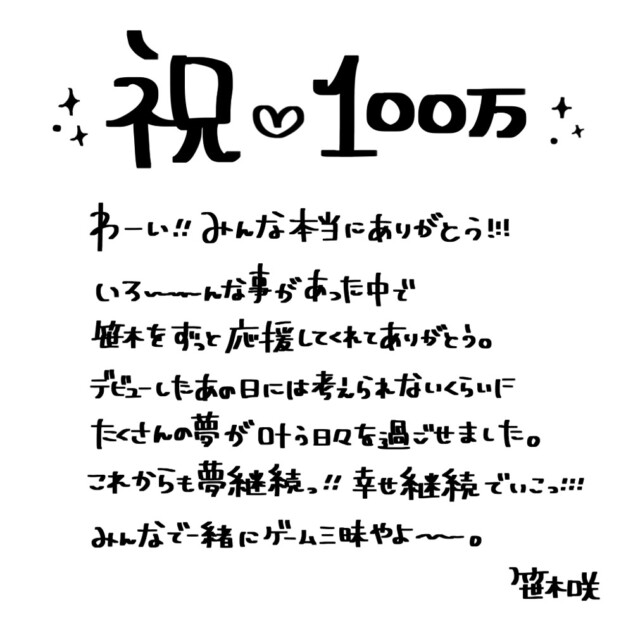 祝♡100万
わーい!! みんな本当にありがとう!!!
いろ〜〜〜んな事があった中で
笹木をずっと応援してくれてありがとう。
デビューしたあの日には考えられないくらいに
たくさんの夢が叶う日々を過ごせました。
これからも夢継続っ!! 幸せ継続でいこっ!!!
みんなで一緒にゲーム三昧やよ〜〜。
笹木咲